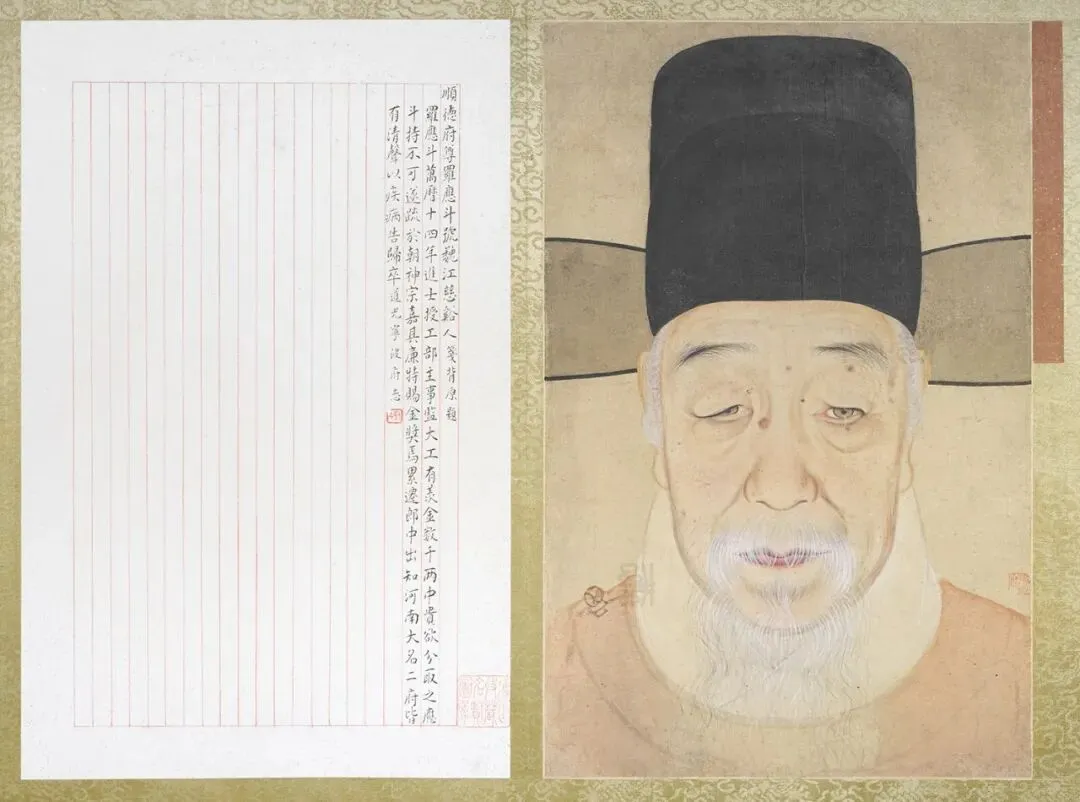 順德府尊羅應斗號巍江慈谿人 箋背原題
羅應斗萬曆十四年進士授工部主事監大工有羨金數千兩中貴欲分取之應
斗持不可遂疏於朝神宗嘉其廉特賜金獎焉累遷郎中出知河南大名二府皆
有清聲以疾病告歸卒 道光寧波府志